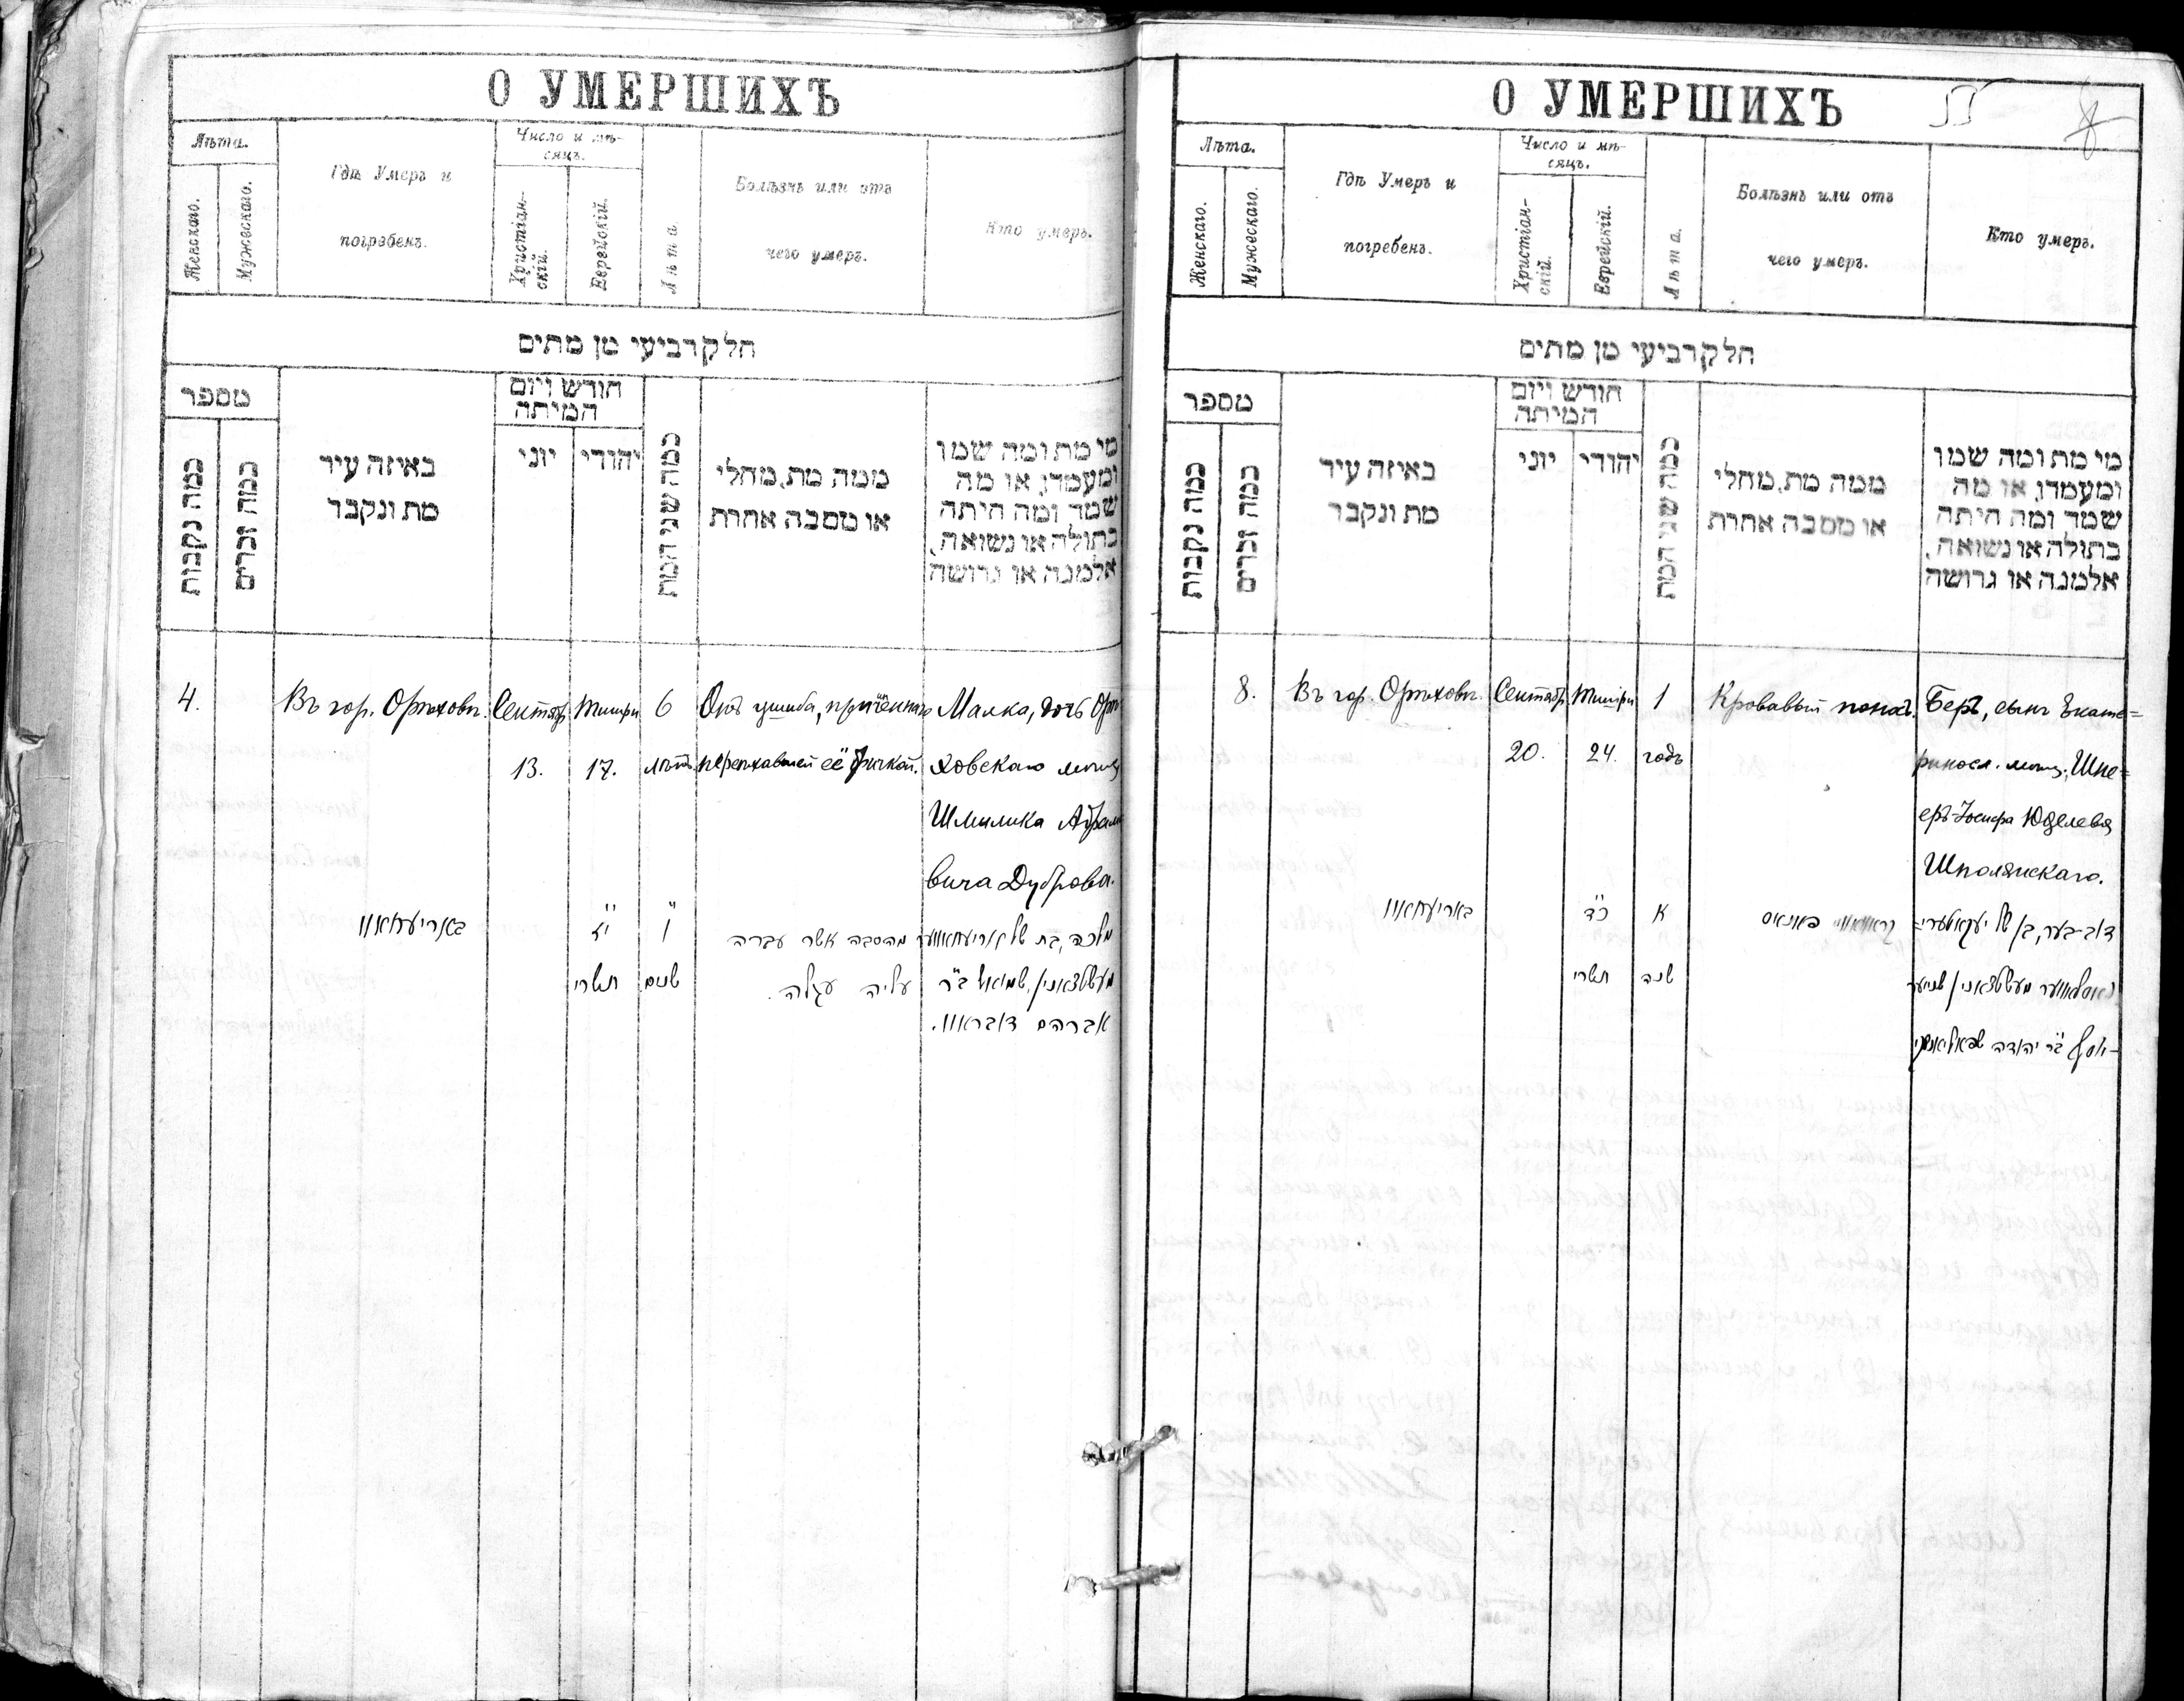 О УМЕРШИХЪ
Лѣта.
Женскаго.
Мужескаго.
Гдѣ Умеръ и
погребенъ.
Число и мѣ-
сяцъ.
Христіан-
скій.
Еврейскій.
Лѣта.
Болѣзнь или отъ
чего умеръ.
Кто умеръ.
חלק רביעי מן מתים
מספר
כמה נקבות
כמה זכרים
באיזה עיר
מת ונקבר
חודש ויום
המיתה
יוני
יהודי
כמה שני המת
ממה מת, מחלי
או מסבה אחרת
מי מת ומה שמו
ומעמדו, או מה
שמה ומה היתה
בתולה או נשואה,
אלמנה או גרושה
4.
Въ гор. Орѣховѣ.
Сентябр.
13.
Тишри
17.
6
лѣтъ
Отъ ушиба, причиннаго
переѣхавшей её бричкой.
Малка, дочь Орѣ
ховскаго мѣщ
Шмилика Абрамо
вича Дуброва.
באריעחאוו
י״ז
תשרי
ו׳
שנים
מהסבה אשר עברה
עליה עגלה.
מלכה, בת של אריעחאווער
מעשטצאנין, שמואל ב״ר
אברהם דובראוו.
О УМЕРШИХЪ
8
Лѣта.
Женскаго.
Мужескаго.
Гдѣ Умеръ и
погребенъ.
Число и мѣ-
сяцъ.
Христіан-
скій.
Еврейскій.
Лѣта.
Болѣзнь или отъ
чего умеръ.
Кто умеръ.
חלק רביעי מן מתים
מספר
כמה נקבות
כמה זכרים
באיזה עיר
מת ונקבר
חודש ויום
המיתה
יוני
יהודי
כמה שני המת
ממה מת, מחלי
או מסבה אחרת
מי מת ומה שמו
ומעמדו, או מה
שמה ומה היתה
בתולה או נשואה,
אלמנה או גרושה
8.
Въ гор. Орѣховѣ.
Сентябр.
20.
Тишри
24.
1
годъ
Кровавый поносъ.
Беръ, сынъ Екате=
риносл. мѣщ. Шне=
еръ-Іосифа Юделева
Шполянскаго.
באריעחאוו
כ״ד
תשרי
א׳
שנה
קראוואווי פאנאס
דוב-בער, בן של יעקאטערי=
נאסלאווער מעשטצאנין שניער
יוסף ב״ר יהודה שפאליאנסקי